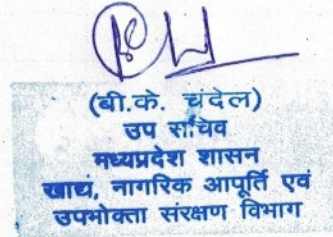 (बी.के. चंदेल)
उप सचिव
मध्यप्रदेश शासन
खाद्य, नागरिक आपूर्ति एवं
उपभोक्ता संरक्षण विभाग